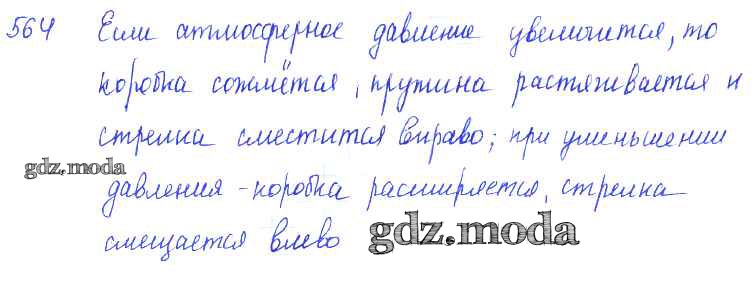 564 Если атмосферное давление увеличится, то
коробка сожмётся, пружина растягивается и
стрелка сместится вправо; при уменьшении
gdz.moda
давления - коробка расширяется, стрелка
смещается влево
gdz.moda